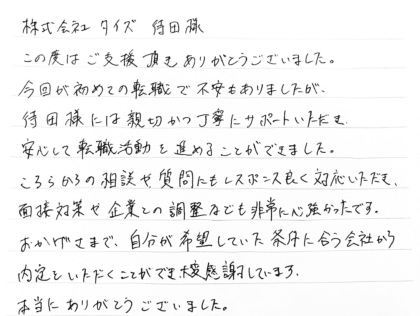 株式会社 タイズ 待田様
この度は ご支援 頂き ありがとうございました。
今回が初めての転職で不安もありましたが、
待田様には親切かつ丁寧にサポートいただき、
安心して転職活動を進めることができました。
こちらからの相談や質問にもレスポンス良く対応いただき、
面接対策や企業との調整なども非常に心強かったです。
おかげさまで、自分が希望していた条件に合う会社から
内定をいただくことができ大変感謝しています。
本当にありがとうございました。